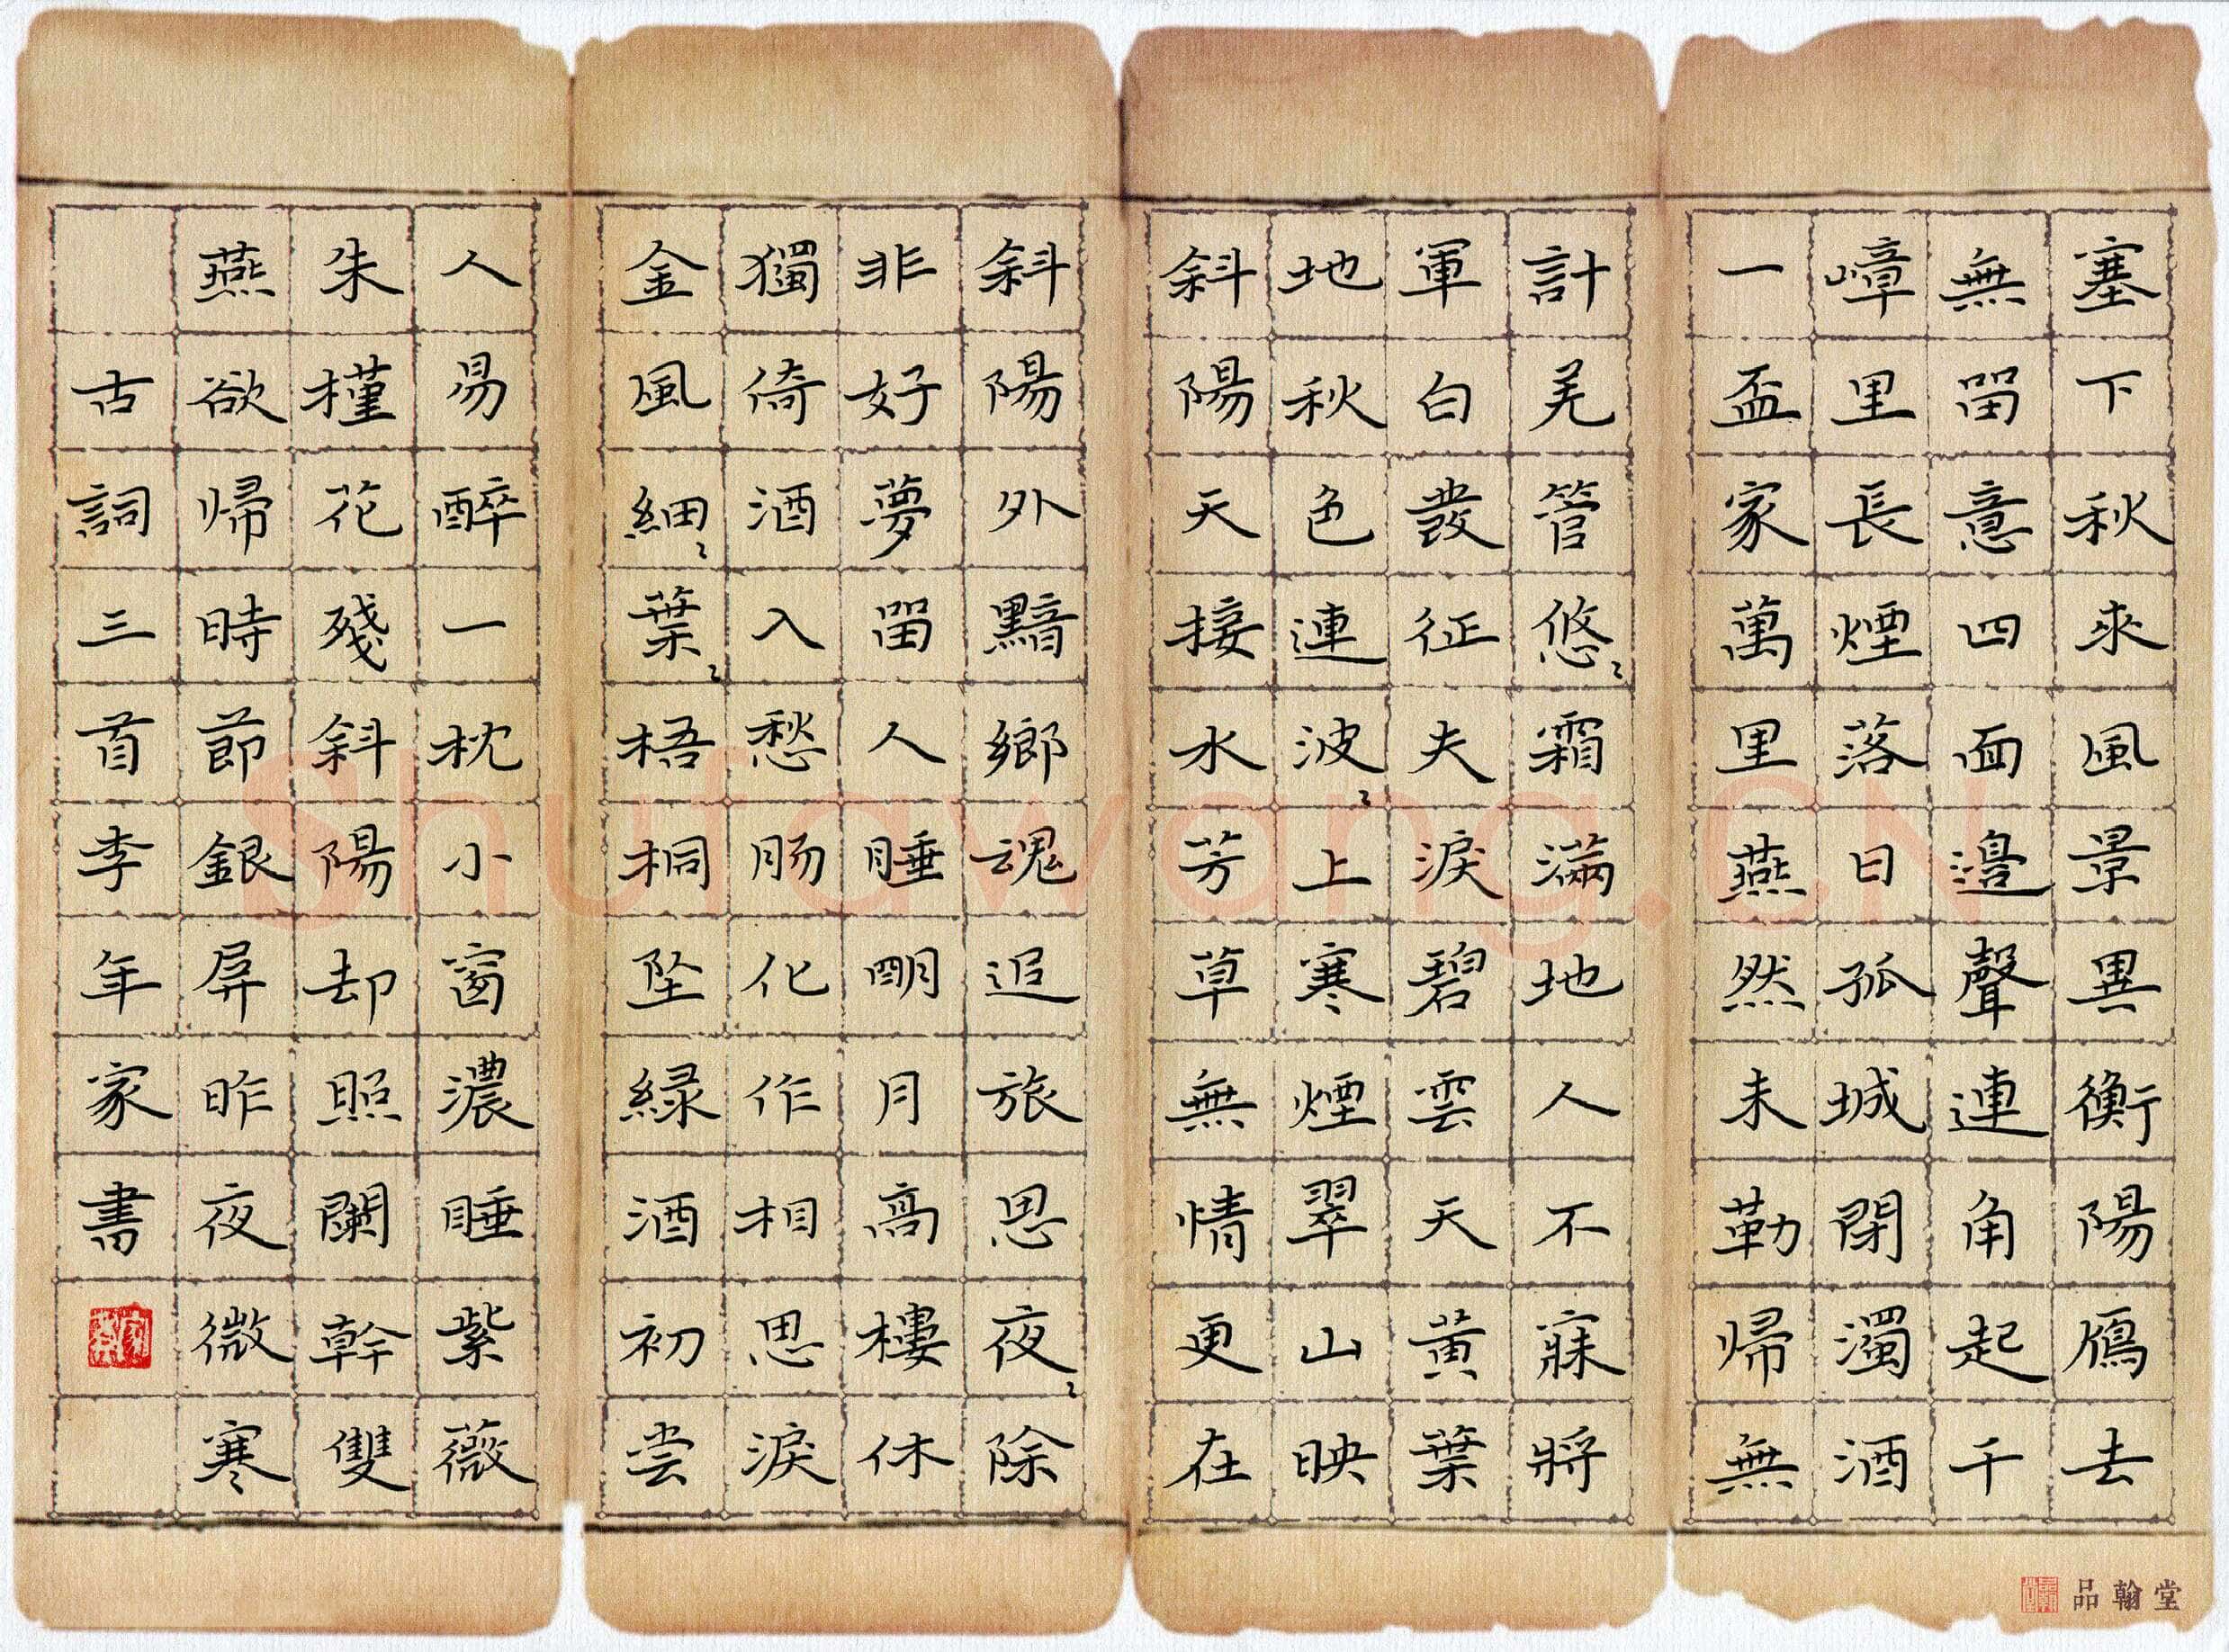 塞下秋來風景異衡陽鴈去
無畱意四面邊聲連角起千
嶂里長煙落日孤城閉濁酒
一盃家萬里燕然未勒歸無
計羌管悠〻霜滿地人不寐將
軍白發征夫淚碧雲天黃葉
地秋色連波〻上寒煙翠山映
斜陽天接水芳草無情更在
斜陽外黯鄉魂追旅思夜〻除
非好夢畱人睡明月高樓休
獨倚酒入愁肠化作相思淚
金風細〻葉〻梧桐坠緑酒初尝
人易醉一枕小窗濃睡紫薇
朱槿花殘斜陽却照闌幹雙
燕欲歸時節銀屏昨夜微寒
古詞三首李年家書
品翰堂
Shufawang.CN